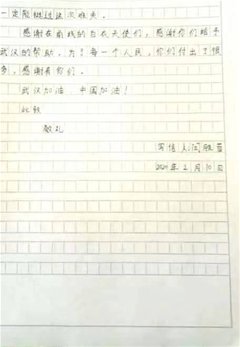 一定能挺过这次难关。
感谢在前线的白衣天使们，感谢你们给予
武汉的帮助，为了每一个人民，你们付出了很
多，感谢有你们。
武汉加油，中国加油！
此致
敬礼
写信人：闫
2020年2月10日